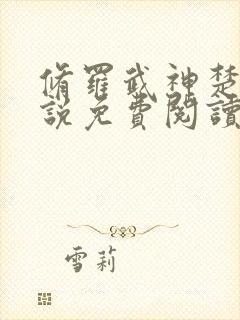 脩羅武神楚
說免費閱讀
雪莉